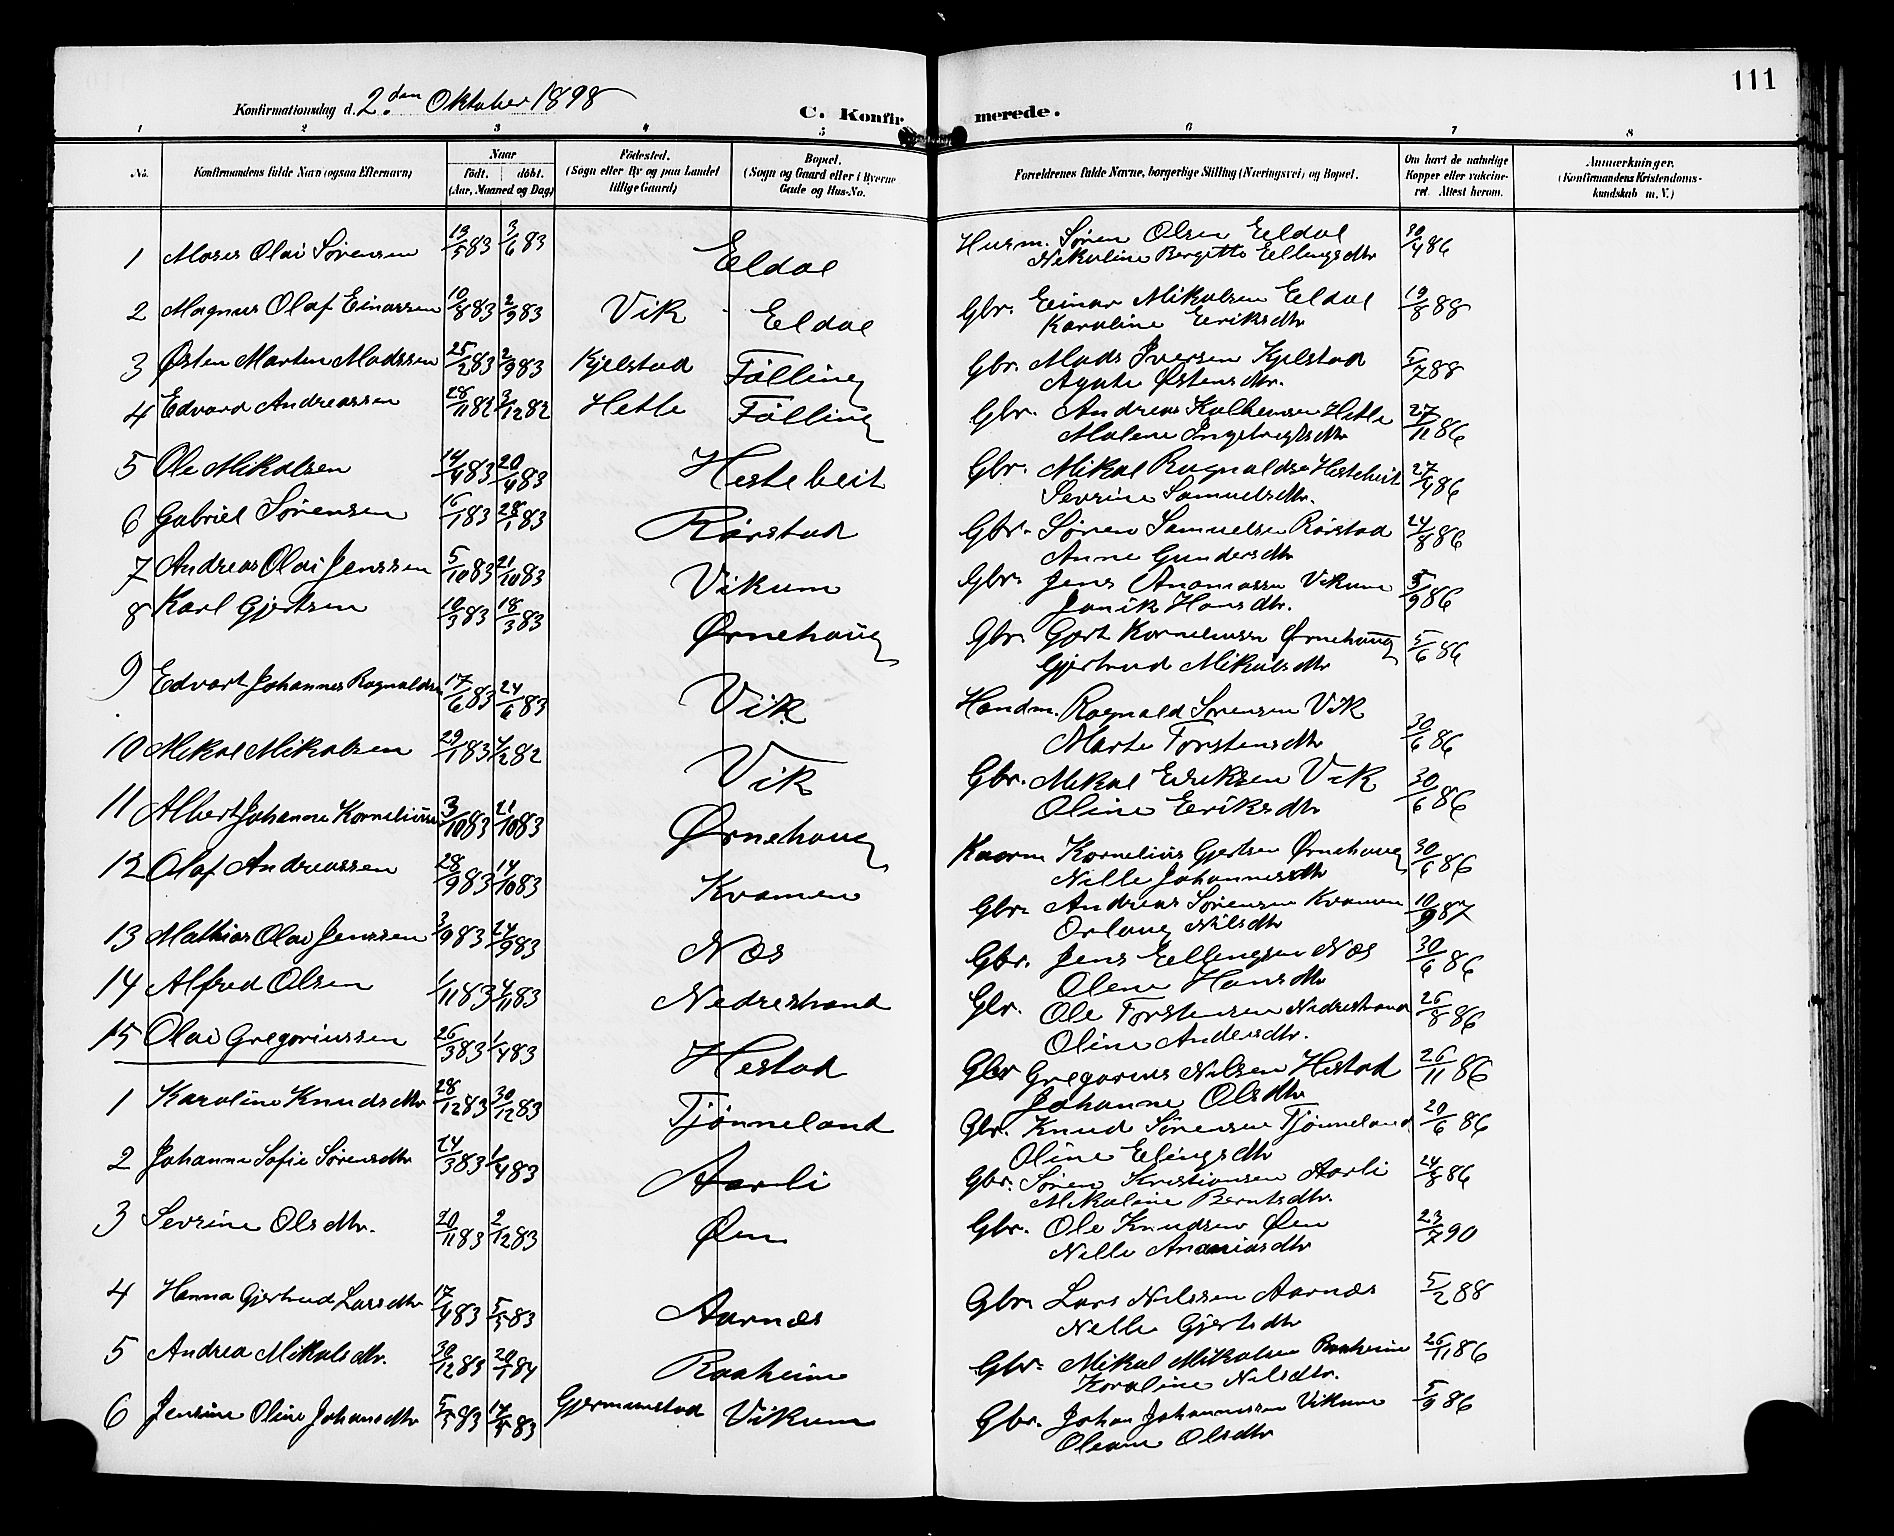 111
Konfirmationsdag d. 2.den Oktober 1898
C. Konfirmerede.
1 2 3 4 5 6 7 8
No.
Konfirmandens fulde Navn (ogsaa Efternavn)
Naar
födt. döbt.
(Aar, Maaned og Dag)
Födested.
(Sogn eller By og paa Landet
tillige Gaard)
Bopæl.
(Sogn og Gaard eller i Byerne
Gade og Hus-No.
Forældrenes fulde Navne, borgerlige Stilling (Næringsvei) og Bopæl.
Om havt de naturlige
Kopper eller vakcine-
ret. Attest herom.
Anmærkninger.
(Konfirmandens Kristendoms-
kundskab m. V.)
1 Moses Olai Sørensen 13/5 83 3/6 83 Eeldal Husm. Søren Olsen Eeldal 30/4 86
Nikoline Bergitte Ellingsdtr
2 Magnus Olaf Einarsen 10/8 83 2/9 83 Vik Eeldal Gbr. Einar Mikalsen Eeldal 19/8 88
Karoline Eeriksdtr
3 Østen Marten Madssen 25/2 83 2/9 83 Kjelstad Fölling Gbr. Mads Iversen Kjelstad 5/7 88
Agate Østensdtr.
4 Edvard Andreassen 28/11 82 3/12 82 Hetle Fölling Gbr. Andreas Hetle 27/11 86
Malene Ingebrigtsdtr
5 Ole Mikalsen 14/4 83 20/4 83 Hestebeit Gbr. Mikal Ragnaldsen Hestebeit 27/4 86
Sevrine Samuelsdtr.
6 Gabriel Sørensen 16/1 83 28/1 83 Rørstad Gbr. Søren Samuelsen Rørstad 24/8 86
Anne Gundersdtr
7 Andreas Olai Jenssen 5/10 83 21/10 83 Vikum Gbr. Jens Ananiassn Vikum 5/9 86
Janik Hansdtr.
8 Karl Gjertsen 10/3 83 18/3 83 Ørnehaug Gbr. Gjert Korneliusen Ørnehaug 5/6 86
Gjertrud Mikalsdtr
9 Edvart Johannes Ragnaldsen 17/6 83 24/6 83 Vik Handm. Ragnald Sørensen Vik 30/6 86
Marte Torstensdtr
10 Mikal Mikalsen 29/1 83 4/2 82 Vik Gbr. Mikal Eriksen Vik 30/6 86
Oline Eeriksdtr
11 Albert Johannes Korneliussen 3/10 83 21/10 83 Ørnehaug Kornelius Gjertsen Ørnehaug 30/6 86
Nille Johannesdtr
12 Olaf Andreassen 28/9 83 14/10 83 Kvamen Gbr. Andreas Sørensen Kvamen 10/9 87
Orlaug Nilsdtr
13 Mathias Olai Jenssen 3/9 83 24/9 83 Næs Gbr. Jens Eellingsen Næs 30/6 86
Olene Hansdtr
14 Alfred Olsen 1/11 83 4/11 83 Nedrestrand Gbr. Ole Torstensen Nedrestrand 26/8 86
Oline Andersdtr.
15 Olai Gregoriussen 26/3 83 1/4 83 Hestad Gbr Gregorius Nilsen Hestad 26/11 86
Johanne Olsdtr
1 Karoline Knudsdtr 28/12 83 30/12 83 Tjønneland Gbr. Knud Sørensen Tjønneland 20/6 86
Oline Elingsdtr
2 Johanne Sofie Sørensdtr 24/3 83 1/4 83 Aarli Gbr. Søren Kristiansen Aarli 24/8 86
Mikaline Berntsdtr.
3 Sevrine Olsdtr. 20/11 83 2/12 83 Øen Gbr. Ole Knudsen Øen 23/7 90
Nille Ananiasdtr
4 Hanna Gjertrud Larsdtr 17/4 83 5/5 83 Aarnæs Gbr. Lars Nilssen Aarnæs 5/2 88
Nelle Gjertsdtr
5 Andrea Mikalsdtr. 30/12 83 20/1 84 Raaheim Gbr. Mikal Mikalsen Raaheim 26/11 86
Karoline Nilsdtr.
6 Jensine Oline Johansdtr 5/5 83 17/5 83 Gjermanstad Vikum Gbr. Johan Johannessen Vikum 5/9 86
Oleane Olsdtr